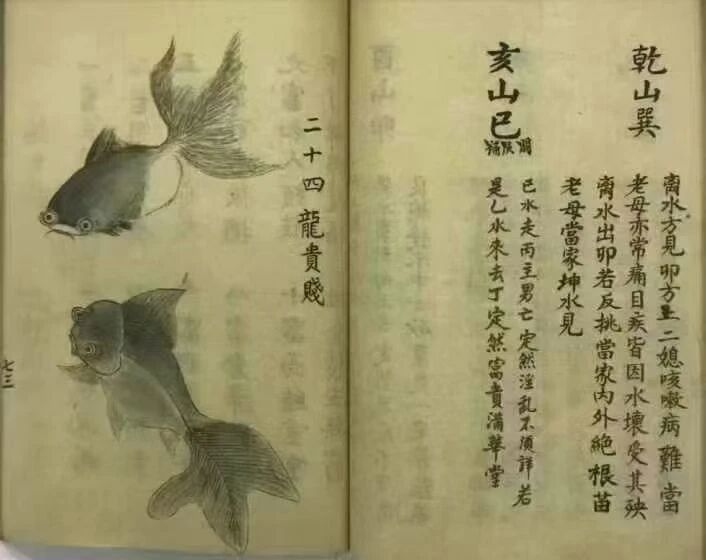 乾山巽
離水方見卯方上二媳咳嗽病難當
老母亦常痛目疾皆因水壞受其殃
离水出卯若反挑當家內外絶根苗
老母當家坤水見
亥山巳
巳水走丙主男亡定然淫乱不須詳若
是乙水來去丁定然富貴滿華堂
二十四龍貴賤
七三